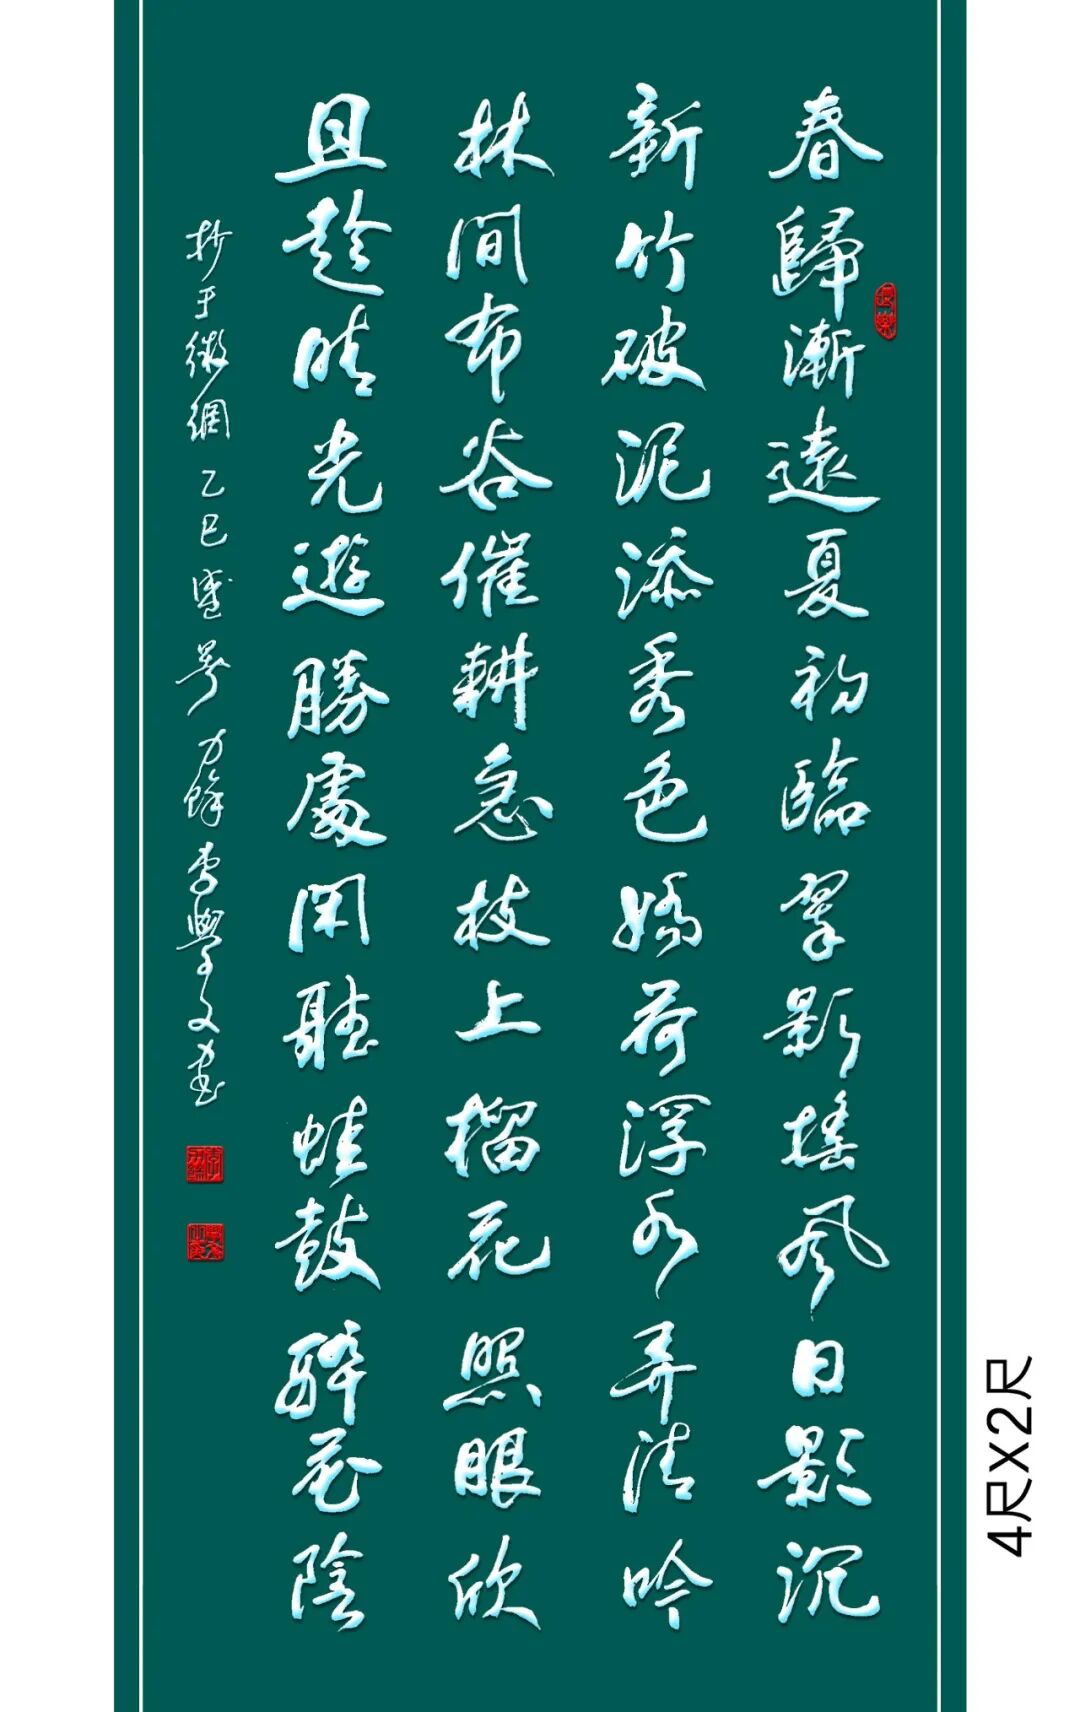 春歸漸遠夏初臨翠影搖風日影沉
新竹破泥添秀色嬌荷浮水弄清吟
林間布谷催耕急枝上榴花照眼欣
且趁晴光遊勝處閑聽蛙鼓醉花陰
抄于微網乙巳盛暑力鋒李學文書
4尺X2尺